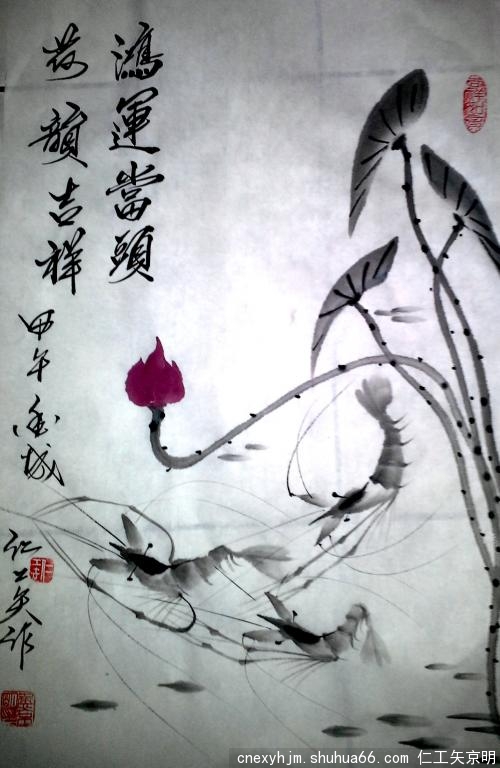 鴻運當頭
荷韻吉祥
甲午 城
仁工矢作
cnexyhjm.shuhua66.com 仁工矢京明